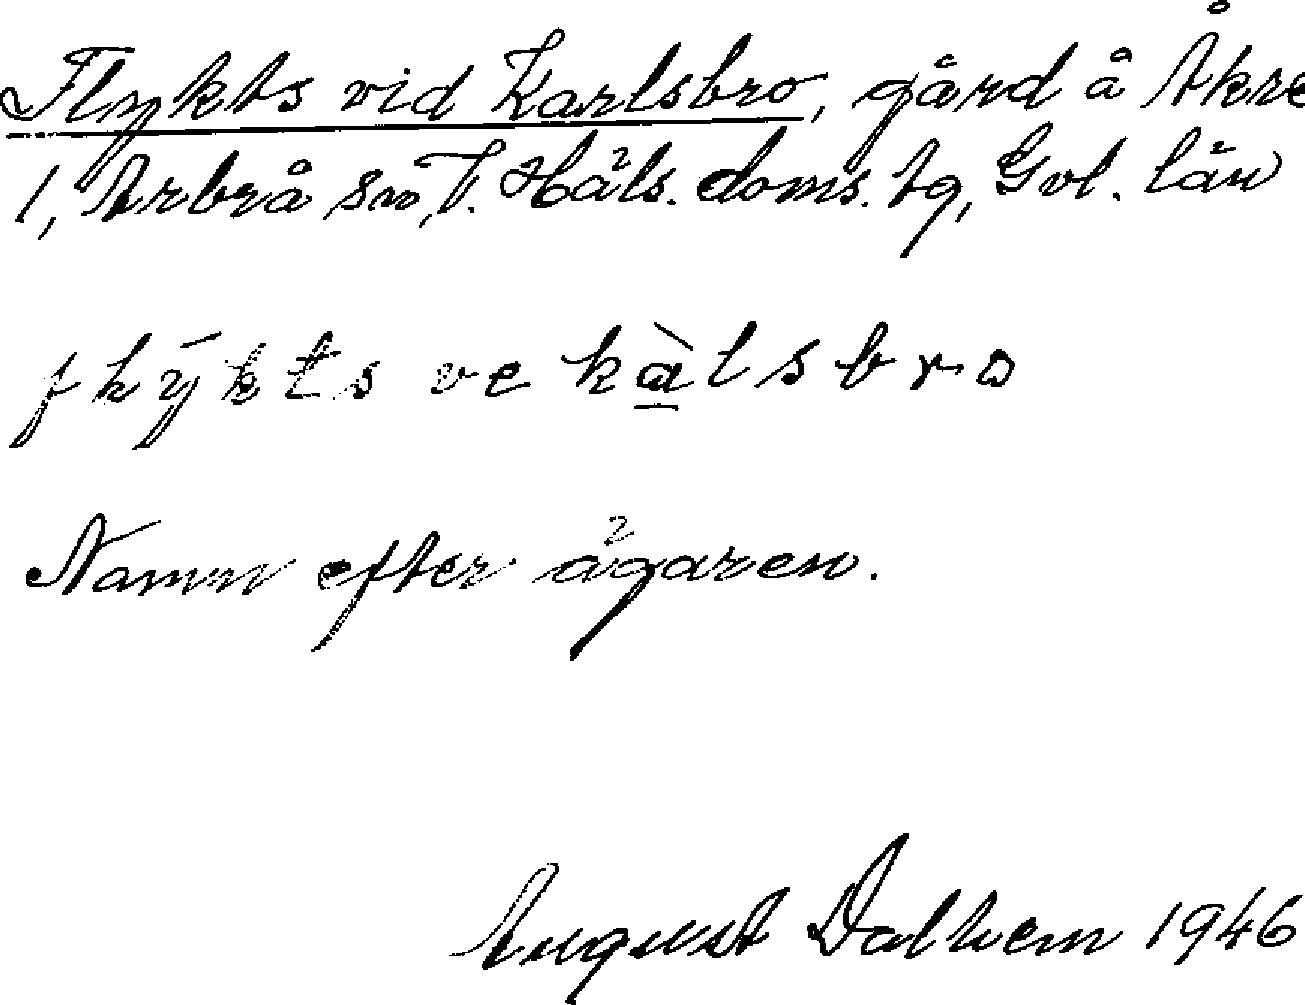 Flykts vid Karlsbro, gård å Åkre
1, Arbrå sn, V. Häls. doms. tg, Gvl. län
ve kàlsbro
Namn efter ägaren.
August Dalhem 1946